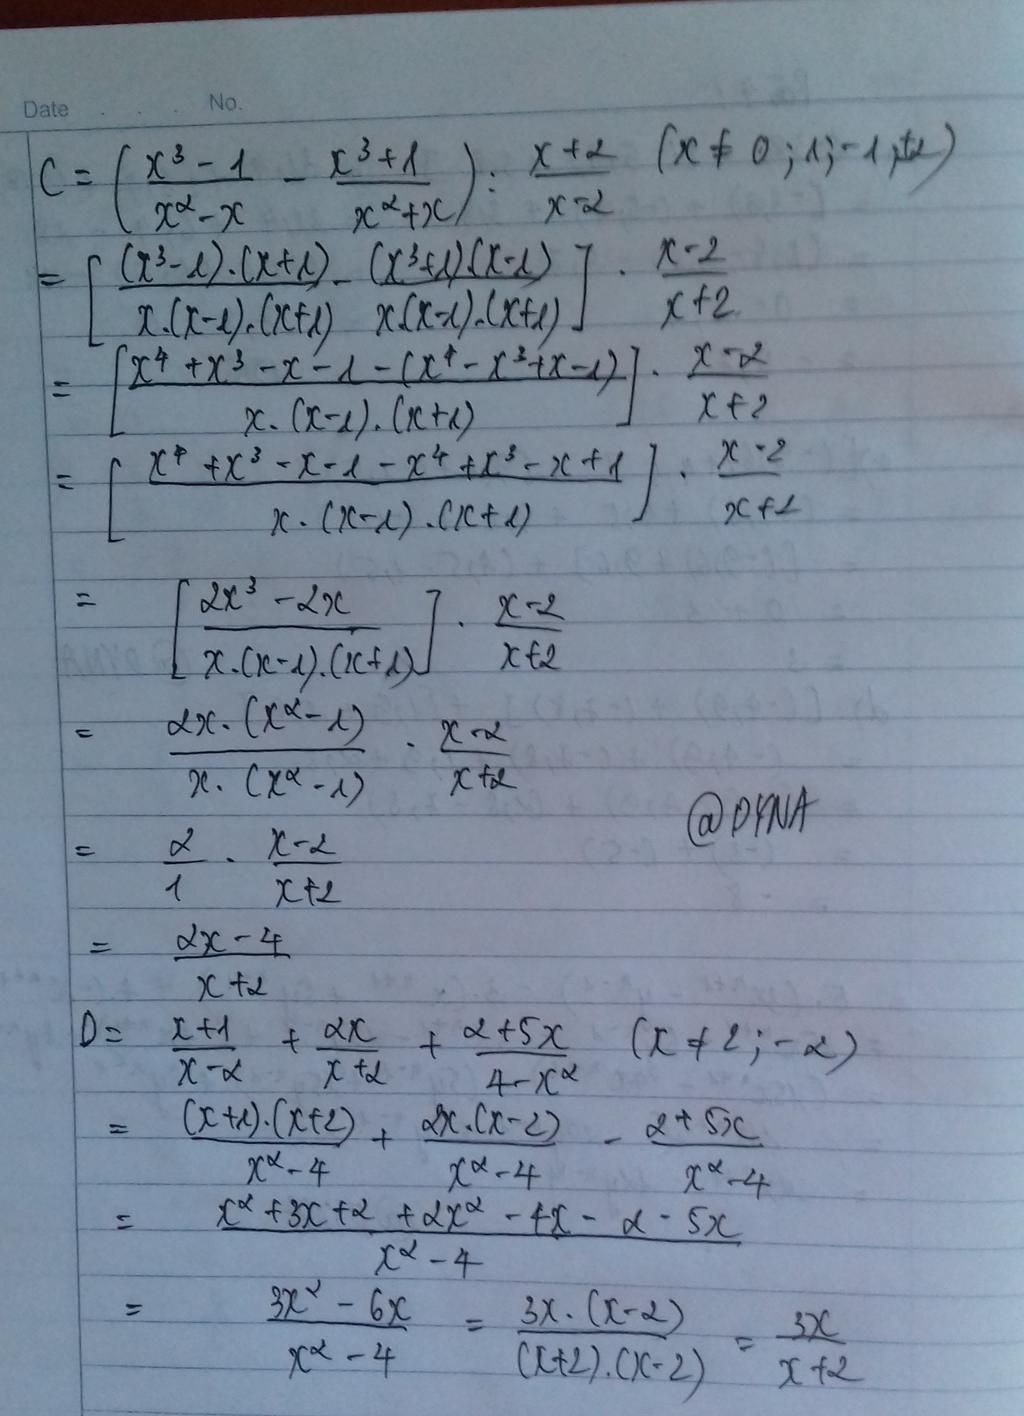 Date . . . No.
C = ( (x³ - 1)/(x² - x) - (x³ + 1)/(x² + x) ) : (x+2)/(x-2) (x ≠ 0; 1; -1; ±2)
= [ (x³-1).(x+1)/x.(x-1).(x+1) - (x³+1).(x-1)/x.(x-1).(x+1) ] . (x-2)/(x+2)
= [ (x⁴ + x³ - x - 1 - (x⁴ - x³ + x - 1))/x.(x-1).(x+1) ] . (x-2)/(x+2)
= [ (x⁴ + x³ - x - 1 - x⁴ + x³ - x + 1)/x.(x-1).(x+1) ] . (x-2)/(x+2)
= [ (2x³ - 2x)/x.(x-1).(x+1) ] . (x-2)/(x+2)
= 2x.(x²-1)/x.(x²-1) . (x-2)/(x+2)
@DYNA
= 2/1 . (x-2)/(x+2)
= (2x-4)/(x+2)
D = (x+1)/(x-2) + 2x/(x+2) + (2+5x)/(4-x²) (x ≠ 2; -2)
= (x+1).(x+2)/(x²-4) + 2x.(x-2)/(x²-4) - (2+5x)/(x²-4)
= (x² + 3x + 2 + 2x² - 4x - 2 - 5x)/(x²-4)
= (3x² - 6x)/(x²-4) = 3x.(x-2)/(x+2).(x-2) = 3x/(x+2)